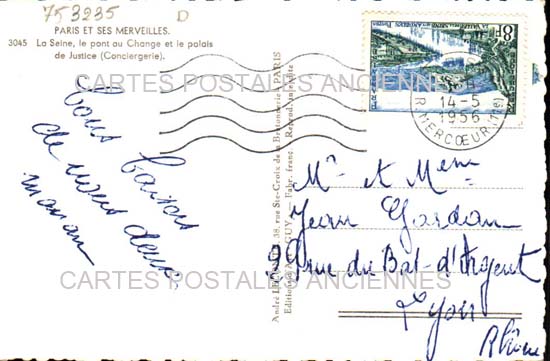 753235
D
PARIS ET SES MERVEILLES.
3045 La Seine, le pont au Change et le palais
de Justice (Conciergerie).
CARTES POSTALES ANCIENNES
Bons baisers
de nous deux
maman
38, rue Ste-Croix de la Bretonnerie PARIS
GUY — Fabr. franç. Reprod. interdite
8F
14-5
1956
R. MERCŒUR (11e)
Mr et Mme
Jean Gordon
29 rue du Bât-d'Argent
CARTES POSTALES ANCIENNES
Lyon
Rhône